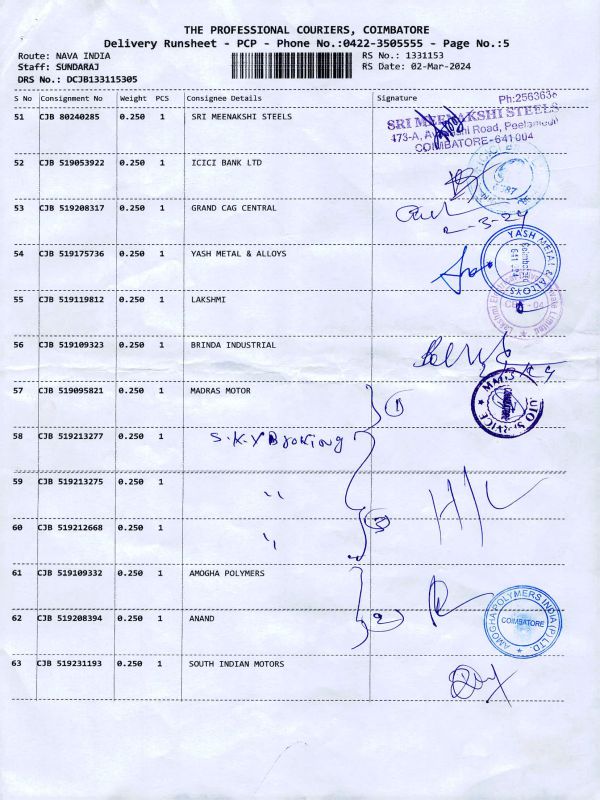 THE PROFESSIONAL COURIERS, COIMBATORE
Delivery Runsheet - PCP - Phone No.:0422-3505555 - Page No.:5
Route: NAVA INDIA RS No.: 1331153
Staff: SUNDARAJ RS Date: 02-Mar-2024
DRS No.: DCJB133115305
S No Consignment No Weight PCS Consignee Details Signature
51 CJB 80240285 0.250 1 SRI MEENAKSHI STEELS
Ph:2563636
SRI MEENAKSHI STEELS
Road, Peelamedu
COIMBATORE-641 004
52 CJB 519053922 0.250 1 ICICI BANK LTD
53 CJB 519208317 0.250 1 GRAND CAG CENTRAL
2-3-24
54 CJB 519175736 0.250 1 YASH METAL & ALLOYS
YASH METAL & ALLOYS
Coimbatore
55 CJB 519119812 0.250 1 LAKSHMI
56 CJB 519109323 0.250 1 BRINDA INDUSTRIAL
57 CJB 519095821 0.250 1 MADRAS MOTOR
1
AUTO SERVICE
58 CJB 519213277 0.250 1 S.K.Y Broking
59 CJB 519213275 0.250 1 "
60 CJB 519212668 0.250 1 "
3
61 CJB 519109332 0.250 1 AMOGHA POLYMERS
62 CJB 519208394 0.250 1 ANAND
2
AMOGHA POLYMERS INDIA (P) LTD.
COIMBATORE
63 CJB 519231193 0.250 1 SOUTH INDIAN MOTORS